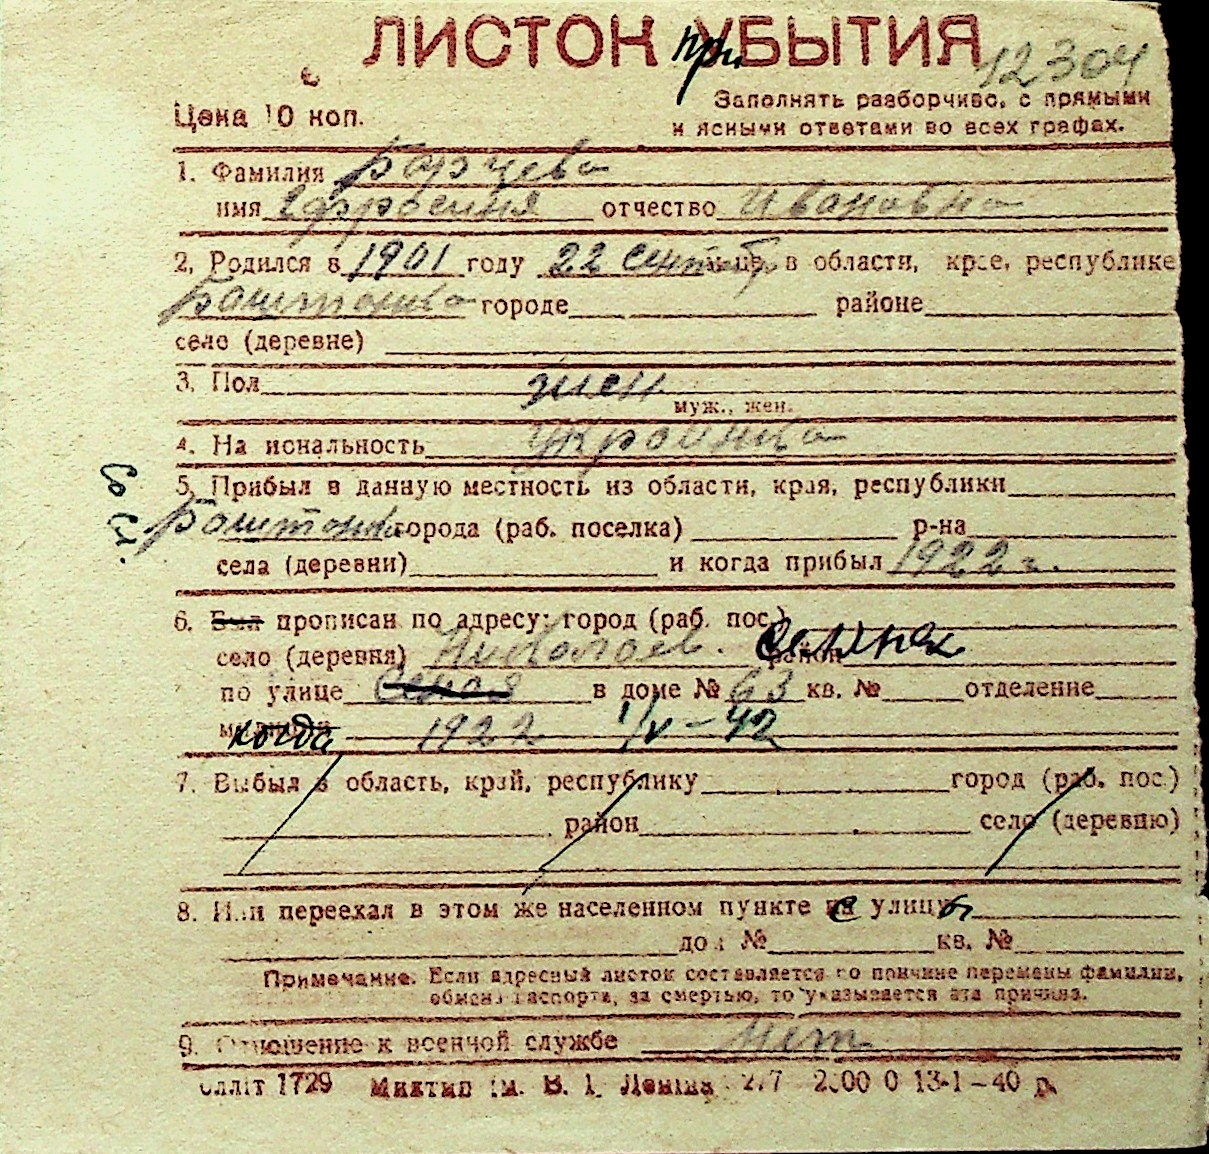 ЛИСТОК УБЫТИЯ
при
12304
Цена 10 коп.
Заполнять разборчиво, с прямыми
и ясными ответами во всех графах.
1. Фамилия Борцева
имя Ефросиния отчество Ивановна
2. Родился в 1901 году 22 сентябр м-це, в области, крае, республике
Баштанка городе районе
село (деревне)
3. Пол жен
муж., жен.
4. Национальность украинка
5. Прибыл в данную местность из области, края, республики
Баштанка города (раб. поселка) р-на
села (деревни) и когда прибыл 1922 г.
6. Был прописан по адресу: город (раб. пос.)
село (деревня) Николаев. район
по улице в доме № 63 кв. № отделение
милиции когда 1922 1/V-42
7. Выбыл в область, край, республику город (раб. пос.)
район село (деревню)
8. Или переехал в этом же населенном пункте на улицу
дом № кв. №
Примечание. Если адресный листок составляется по причине перемены фамилии,
обмена паспорта, за смертью, то указывается эта причина.
9. Отношение к военной службе нет
Облліт 1729 Миктип ім. В. І. Леніна 2000 0 13-1-40 р.